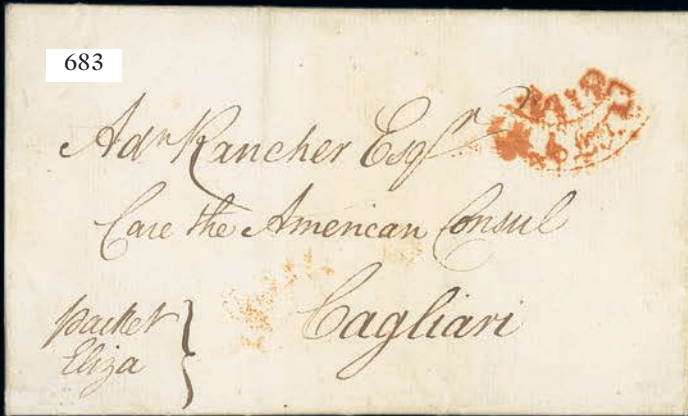 683
Adn Rancher Esqr
Care the American Consul
Cagliari
packet
Eliza